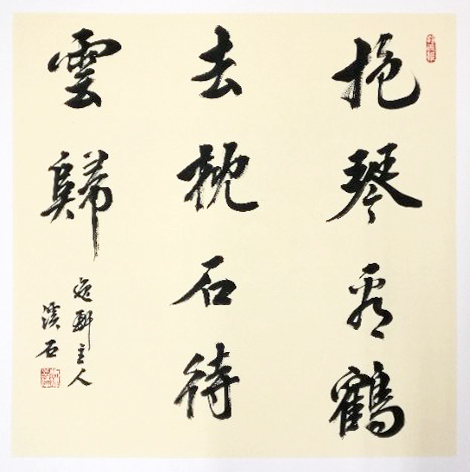 抱琴看鶴
去枕石待
雲歸
逸軒主人
溪石